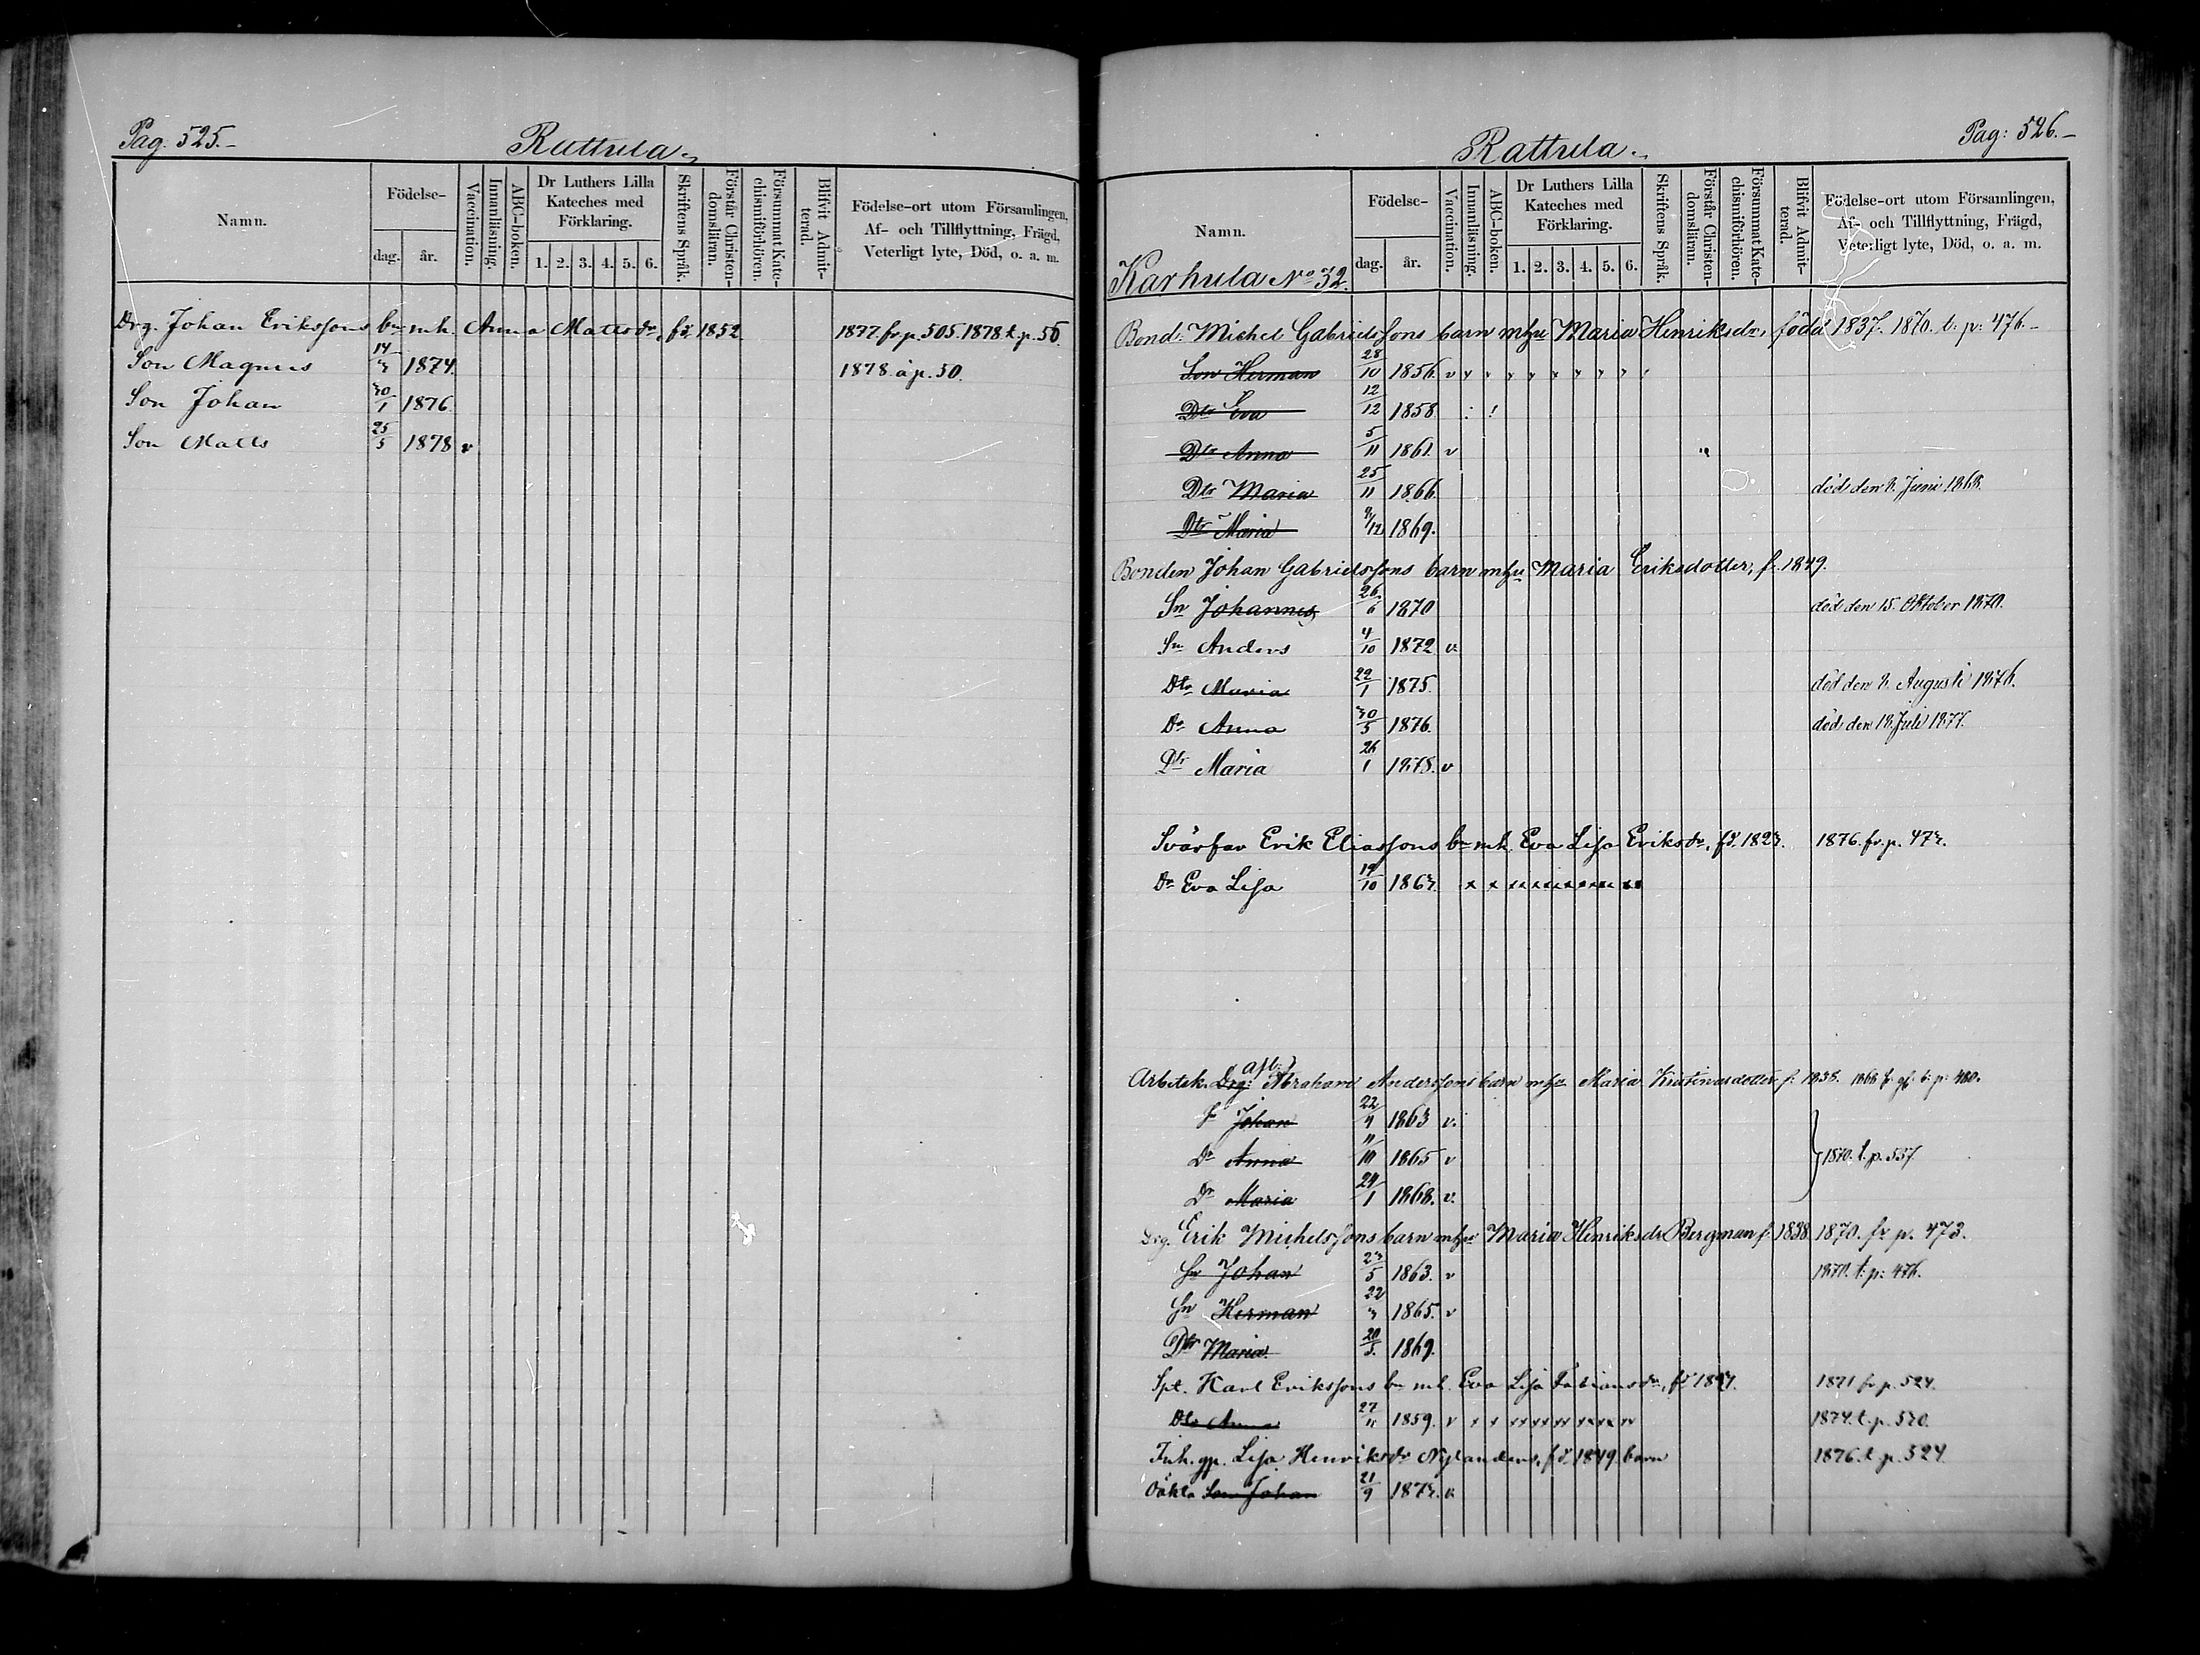 Pag. 525.-
Rattula.
Namn.
Födelse-
dag.
år.
Vaccination.
Innanläsning.
ABC-boken.
Dr Luthers Lilla Kateches med Förklaring.
1. 2. 3. 4. 5. 6.
Skriftens Språk.
Förstår Christendomsläran.
Försummat Katechismiförhören.
Blifvit Admitterad.
Födelse-ort utom Församlingen,
Af- och Tillflyttning, Frägd,
Veterligt lyte, Död, o. a. m.
Drg. Johan Erikssons bn mh. Anna Mattsdr, fd. 1852. 1877. fr. p. 505. 1878 t. p. 50.
Son Magnus 14/3 1874. 1878 à p. 50.
Son Johan 30/1 1876.
Son Matts 25/5 1878 v
Pag: 526.-
Rattula.
Namn.
Karhula No 32.
Födelse-
dag.
år.
Vaccination.
Innanläsning.
ABC-boken.
Dr Luthers Lilla Kateches med Förklaring.
1. 2. 3. 4. 5. 6.
Skriftens Språk.
Förstår Christendomsläran.
Försummat Katechismiförhören.
Blifvit Admitterad.
Födelse-ort utom Församlingen,
Af- och Tillflyttning, Frägd,
Veterligt lyte, Död, o. a. m.
Bond. Michel Gabrielssons barn mhu Maria Henriksdr, född 1837. 1870. t. p: 476.-
Son Herman 28/10 1856. v
Dtr Eva 12/12 1858.
Dtr Anna 5/11 1861. v
Dtr Maria 25/11 1866. död den 8. Juni 1868.
Dtr Maria 9/12 1869.
Bonden Johan Gabrielssons barn mhu Maria Eriksdotter, f. 1849.
Sn Johannes 26/6 1870 död den 15. Oktober 1870.
Sn Anders 4/10 1872 v.
Dtr Maria 22/1 1875. död den 8. Augusti 1876.
Dr Anna 30/5 1876. död den 18. Juli 1877.
Dtr Maria 26/1 1878. v
Svärfar Erik Eliassons bn mh. Eva Lisa Eriksdr, fd. 1823. 1876. fr. p. 473.
Dr Eva Lisa 19/10 1863. x x x x x x x x x x
Arbetsk. Drg: Abraham Anderssons barn mhu Maria Kristinasdotter f. 1838. 1868 t: p: 480.
Sn Johan 22/4 1863 v.
Dr Anna 11/10 1865 v 1870. t. p. 537.
Dr Maria 24/1 1868. v.
Drg. Erik Michelssons barn mhu Maria Henriksdr Bergman f. 1838 1870. fr p. 473.
Sn Johan 23/5 1863. v 1870. t: p: 476.
Sn Herman 22/3 1865. v
Dtr Maria 20/3. 1869.
Spt. Karl Erikssons bn mh. Eva Lisa Fabiansdr, fd 1827. 1871 fr p. 524.
Dtr Anna 27/11 1859. v x x x x x x x x x x 1874. t. p. 520.
Inh. gp. Lisa Henriksdr Nylanders, fd. 1849 barn 1876. t. p. 524.
Oäkta Son Johan 21/9 1873. v.